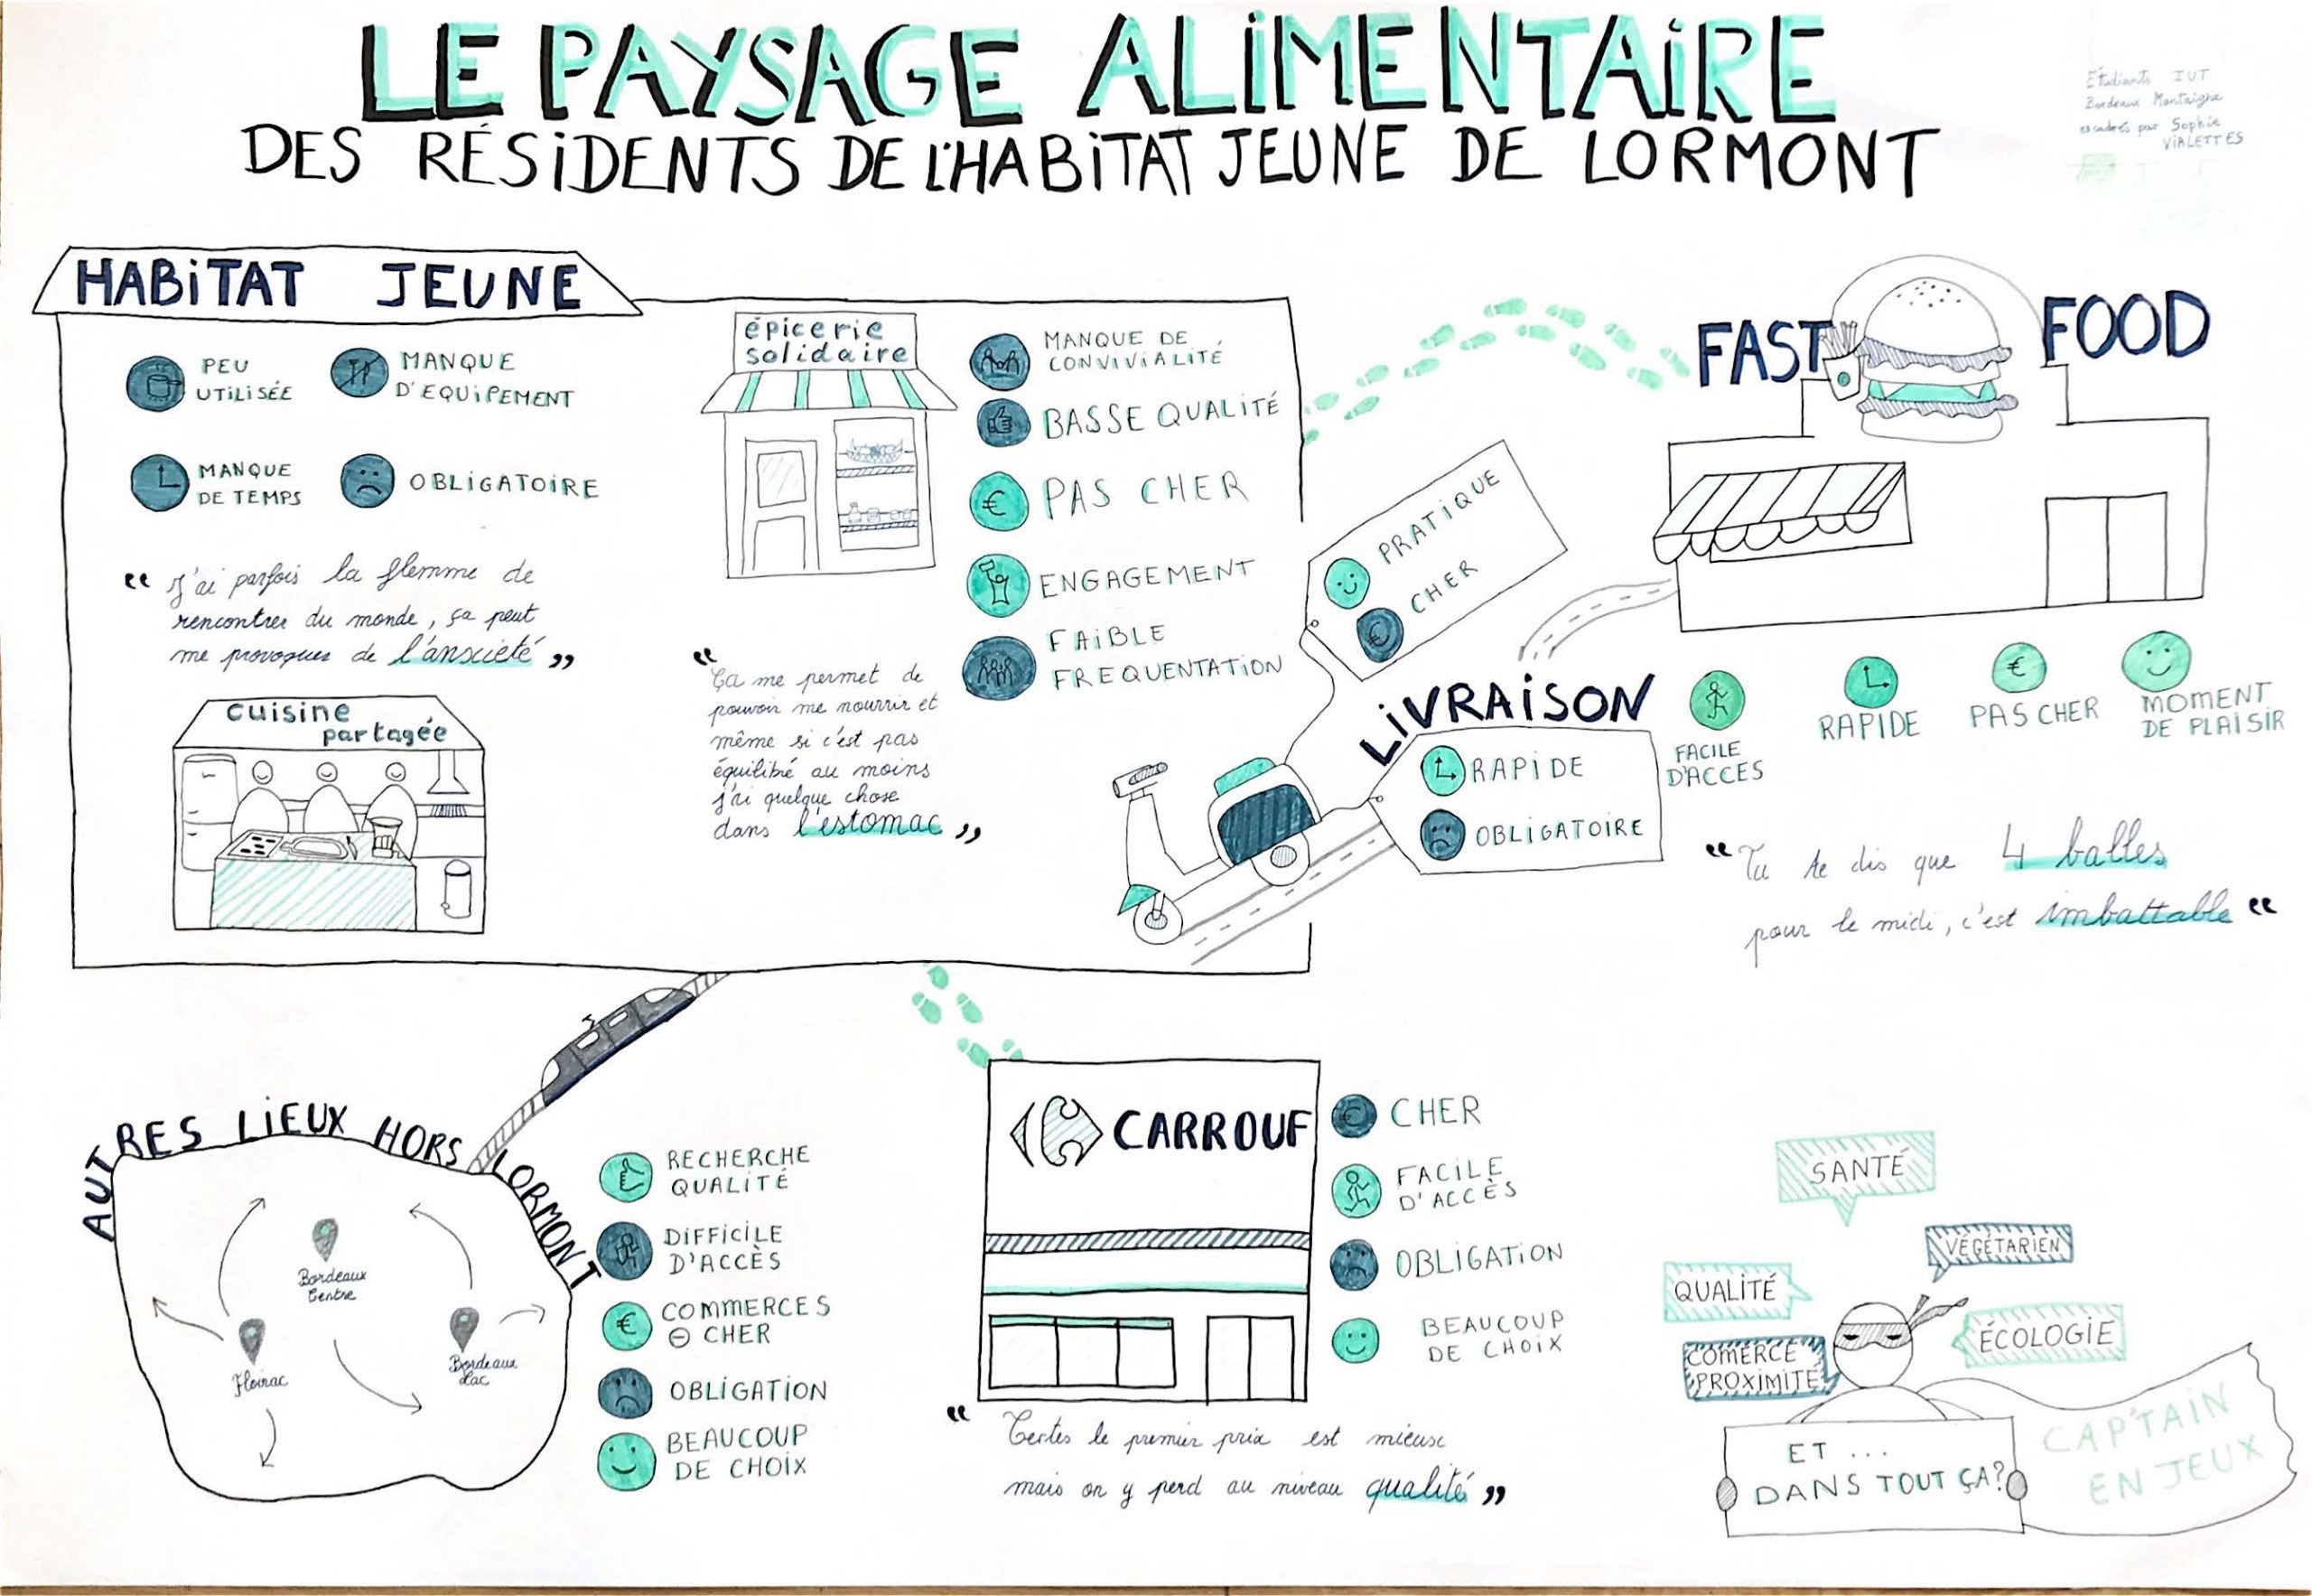 LE PAYSAGE ALiMENTAiRE
DES RÉSiDENTS DE L'HABiTAT JEUNE DE LORMONT
Étudiants IUT
Bordeaux Montaigne
encadrés par Sophie
VIALETTES
HABiTAT JEUNE
PEU
UTiLiSÉE
MANQUE
D'EQUiPEMENT
MANQUE
DE TEMPS
OBLiGATOiRE
“ J'ai parfois la flemme de
rencontrer du monde, ça peut
me provoquer de l'ansciété ”
cuisine
partagée
épicerie
solidaire
MANQUE DE
CONViViALiTÉ
BASSE QUALiTÉ
€ PAS CHER
ENGAGEMENT
FAiBLE
FREQUENTATiON
“ Ça me permet de
pouvoir me nourrir et
même si c'est pas
équilibré au moins
j'ai quelque chose
dans l'estomac ”
PRATiQUE
€ CHER
LiVRAiSON
RAPiDE
OBLiGATOiRE
FAST FOOD
FACiLE
D'ACCES
RAPiDE
€
PAS CHER
MOMENT
DE PLAiSiR
“ Tu te dis que 4 balles
pour le midi, c'est imbattable “
AUTRES LiEUX HORS LORMONT
Bordeaux
Centre
Floirac
Bordeaux
Lac
RECHERCHE
QUALiTÉ
DiFFiCiLE
D'ACCÈS
€ COMMERCES
⊖ CHER
OBLiGATiON
BEAUCOUP
DE CHOiX
CARROUF
€ CHER
FACiLE
D'ACCÈS
OBLiGATiON
BEAUCOUP
DE CHOiX
“ Certes le premier prix est mieux
mais on y perd au niveau qualité ”
SANTÉ
VÉGÉTARiEN
QUALiTÉ
ÉCOLOGiE
COMERCE
PROXiMiTÉ
ET ...
DANS TOUT ÇA?
CAP'TAiN
EN JEUX